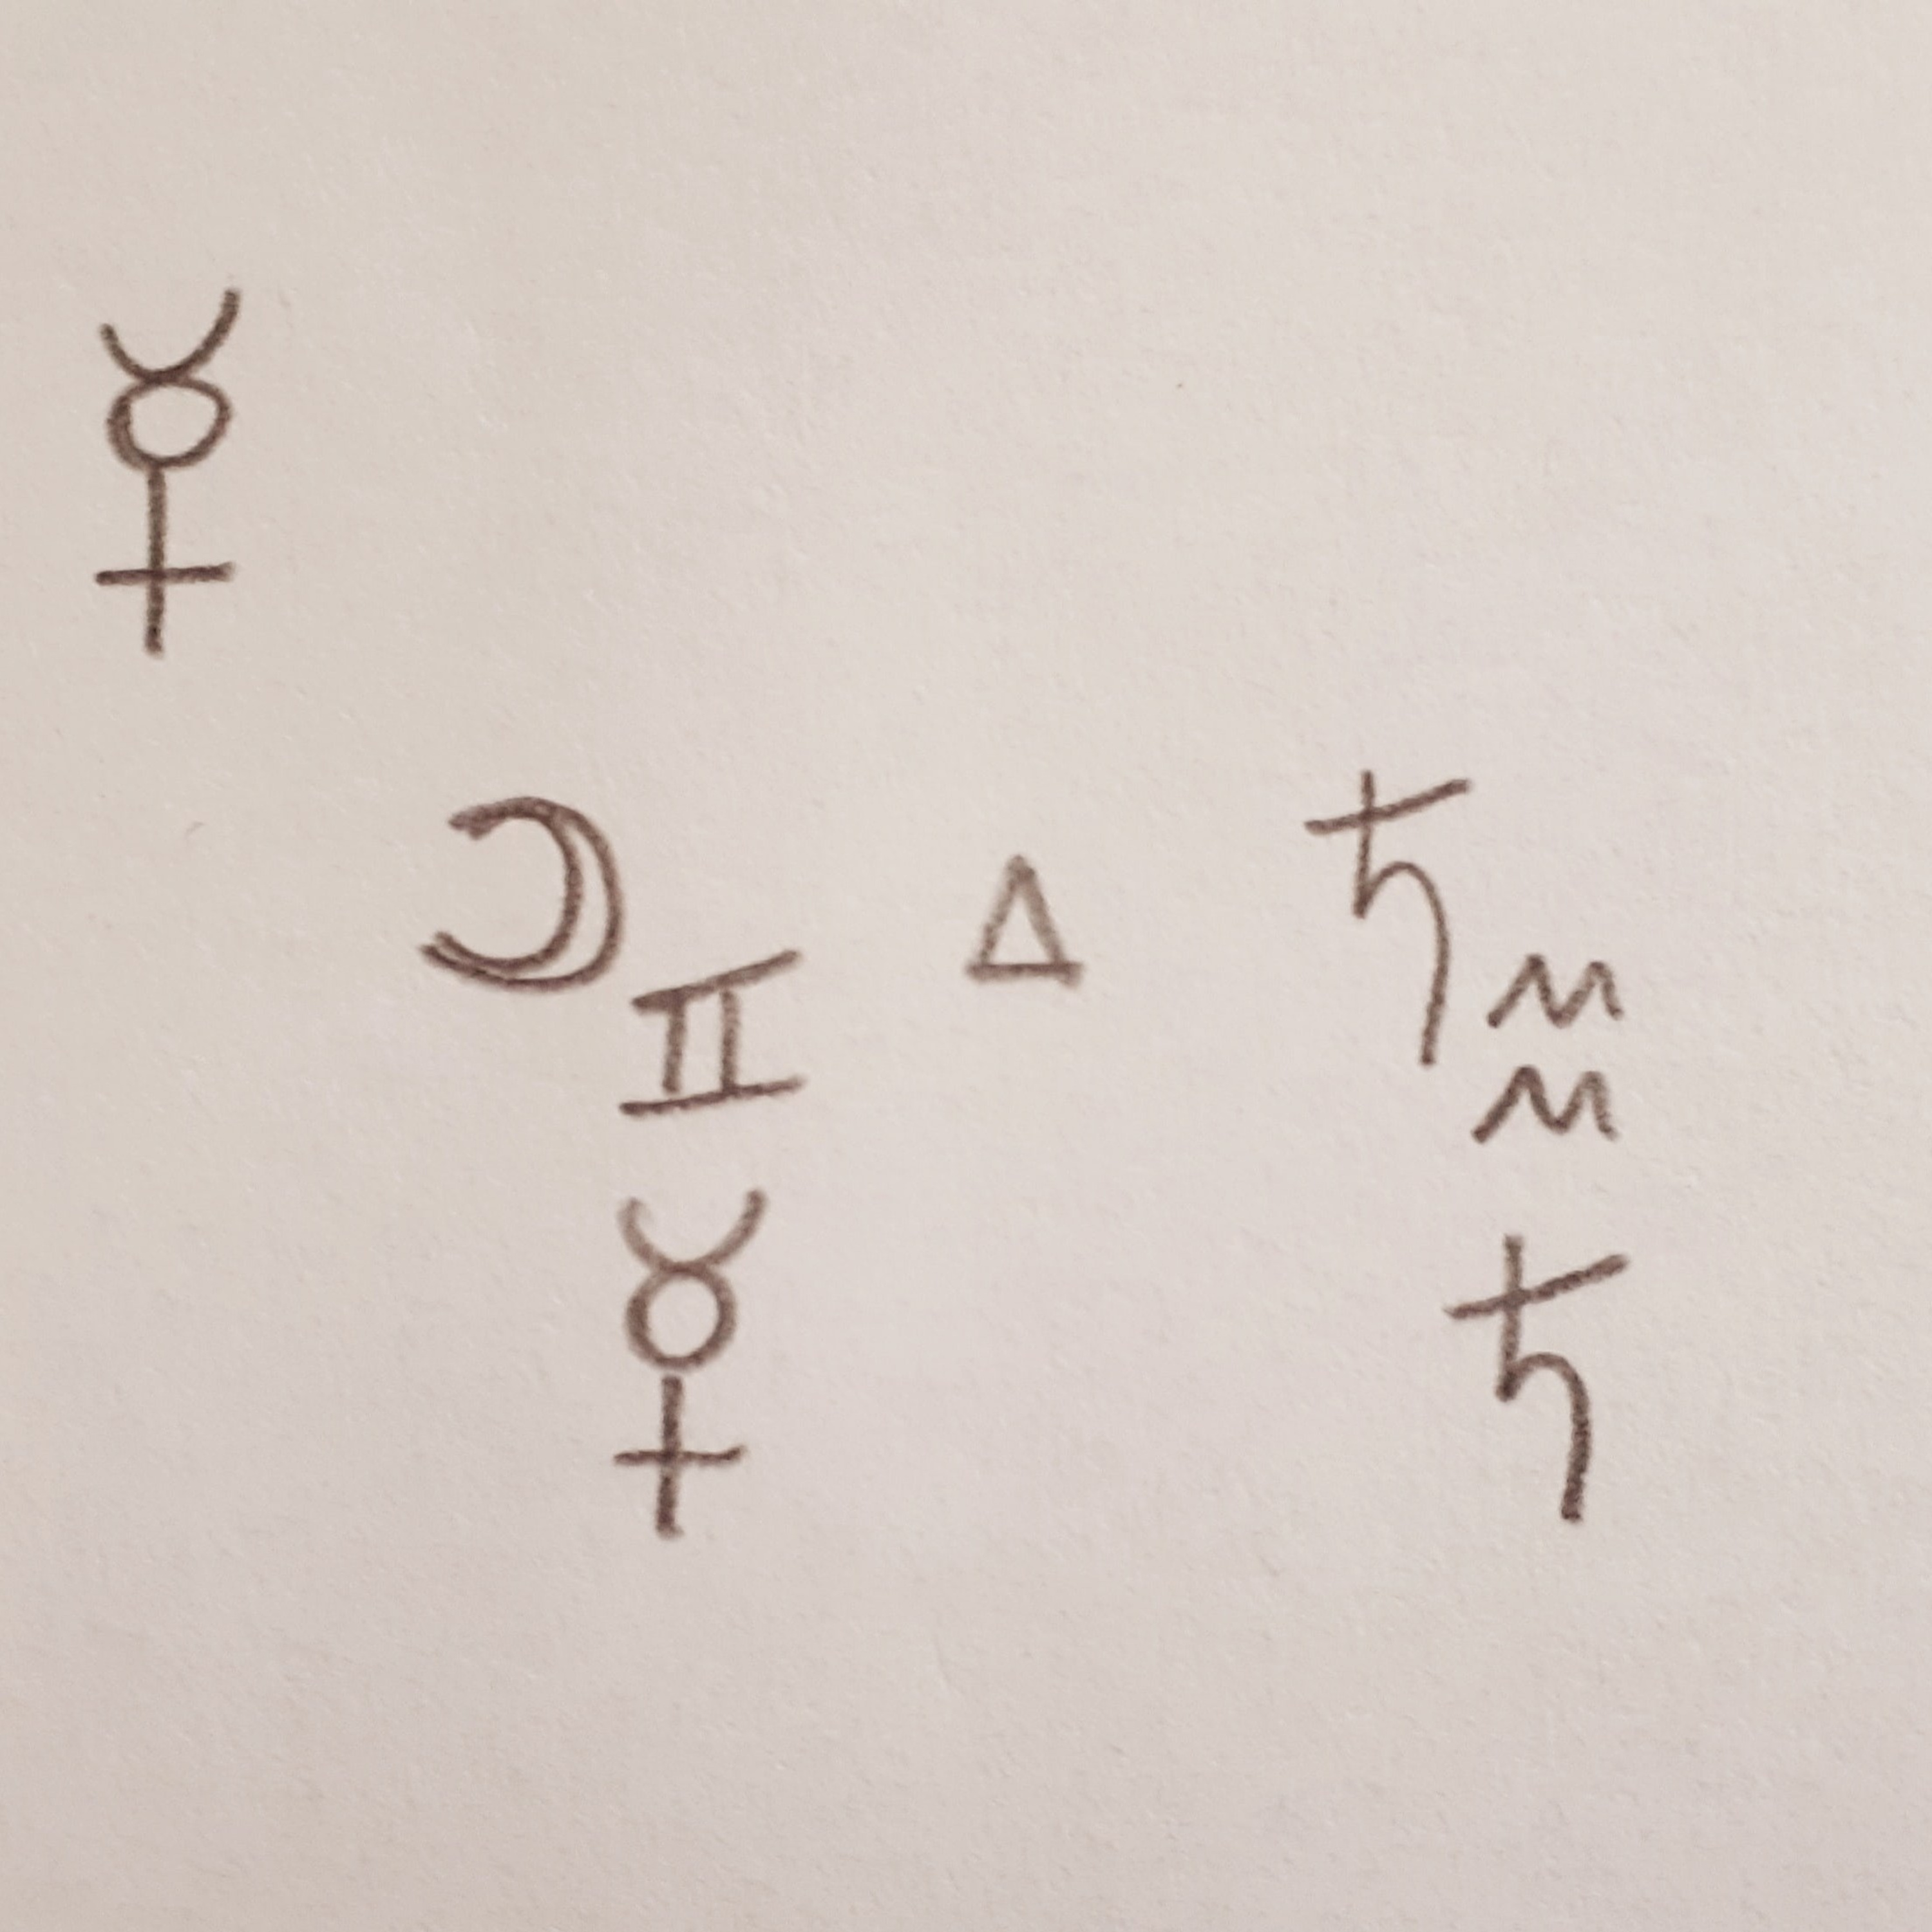 ☿
☽ ♊ △ ♄ ♒
☿ ♄